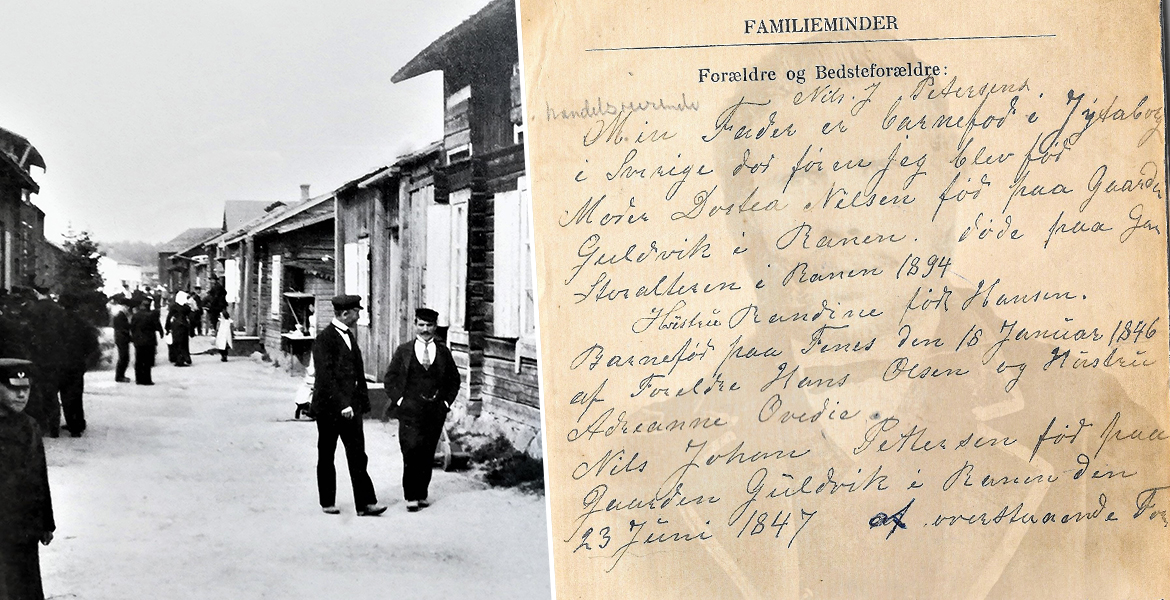 FAMILIEMINDER
Forældre og Bedsteforældre:
Nils. J Petersens.
handelsreisende
Min Fader er barnefød i Jytabog
i Sverige død føren jeg blev fød
Moder Dostea Nilsen fød paa Gaarden
Guldvik i Ranen. døde paa Gaa
Storalteren i Ranen 1894
Hustru Randine født Hansen.
Barnefød paa Fenes den 18 Januar 1846
af Foreldre Hans Olsen og Hustru
Adreanne Ovedie.
Nils Johan Pettersen fød paa
Gaarden Guldvik i Ranen den
23 Juni 1847 af overstaaende For